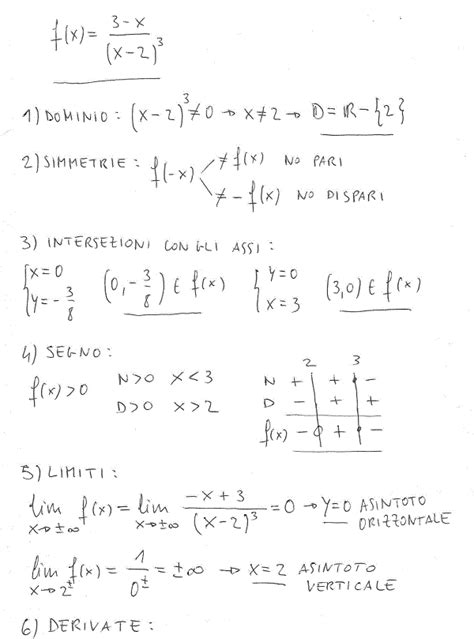 f(x) = (3-x)/(x-2)³
1) DOMINIO : (x-2)³ ≠ 0 → x ≠ 2 → D = R - {2}
2) SIMMETRIE : f(-x) ≠ f(x) NO PARI
≠ - f(x) NO DISPARI
3) INTERSEZIONI CON GLI ASSI :
{ x = 0 (0, -3/8) ∈ f(x) { y = 0 (3,0) ∈ f(x)
{ y = -3/8 { x = 3
4) SEGNO :
2 3
f(x) > 0 N>0 x<3 N + + -
D>0 x>2 D - + +
f(x) - + -
5) LIMITI :
lim x→±∞ f(x) = lim x→±∞ (-x+3)/(x-2)³ = 0 → y=0 ASINTOTO
ORIZZONTALE
lim x→2± f(x) = 1/0± = ±∞ → x = 2 ASINTOTO
VERTICALE
6) DERIVATE :